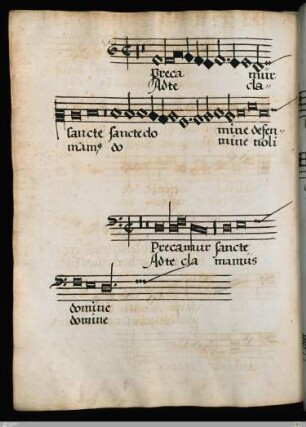 Preca mur
Adte cla
sancte sancte do mine defen
mamꝰ do mine noli
Precamur sancte
Adte cla mamus
domine
domine